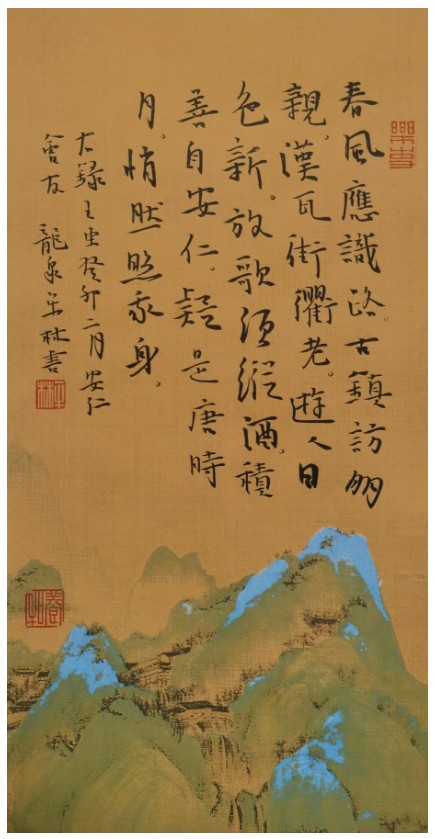 春風應識路。古鎮訪朋
親。漢瓦街衢老。遊人日
色新。放歌須縱酒。積
善自安仁。疑是唐時
月。悄然照我身。
右録王虫癸卯二月安仁
會友 龍泉林書